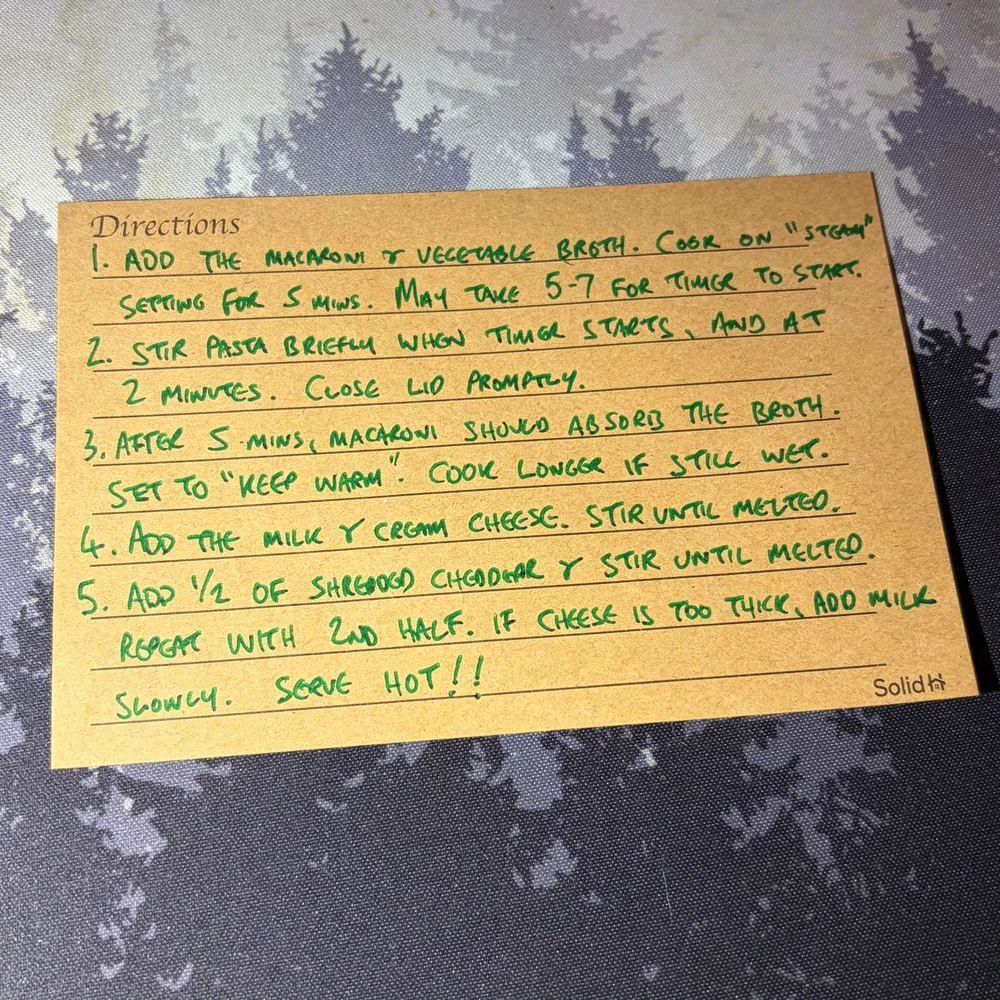 Directions
1. ADD THE MACARONI & VEGETABLE BROTH. COOK ON "STEAM"
SETTING FOR 5 MINS. MAY TAKE 5-7 FOR TIMER TO START.
2. STIR PASTA BRIEFLY WHEN TIMER STARTS, AND AT
2 MINUTES. CLOSE LID PROMPTLY.
3. AFTER 5 MINS, MACARONI SHOULD ABSORB THE BROTH.
SET TO "KEEP WARM". COOK LONGER IF STILL WET.
4. ADD THE MILK & CREAM CHEESE. STIR UNTIL MELTED.
5. ADD 1/2 OF SHREDDED CHEDDAR & STIR UNTIL MELTED.
REPEAT WITH 2ND HALF. IF CHEESE IS TOO THICK, ADD MILK
SLOWLY. SERVE HOT!!
Solid